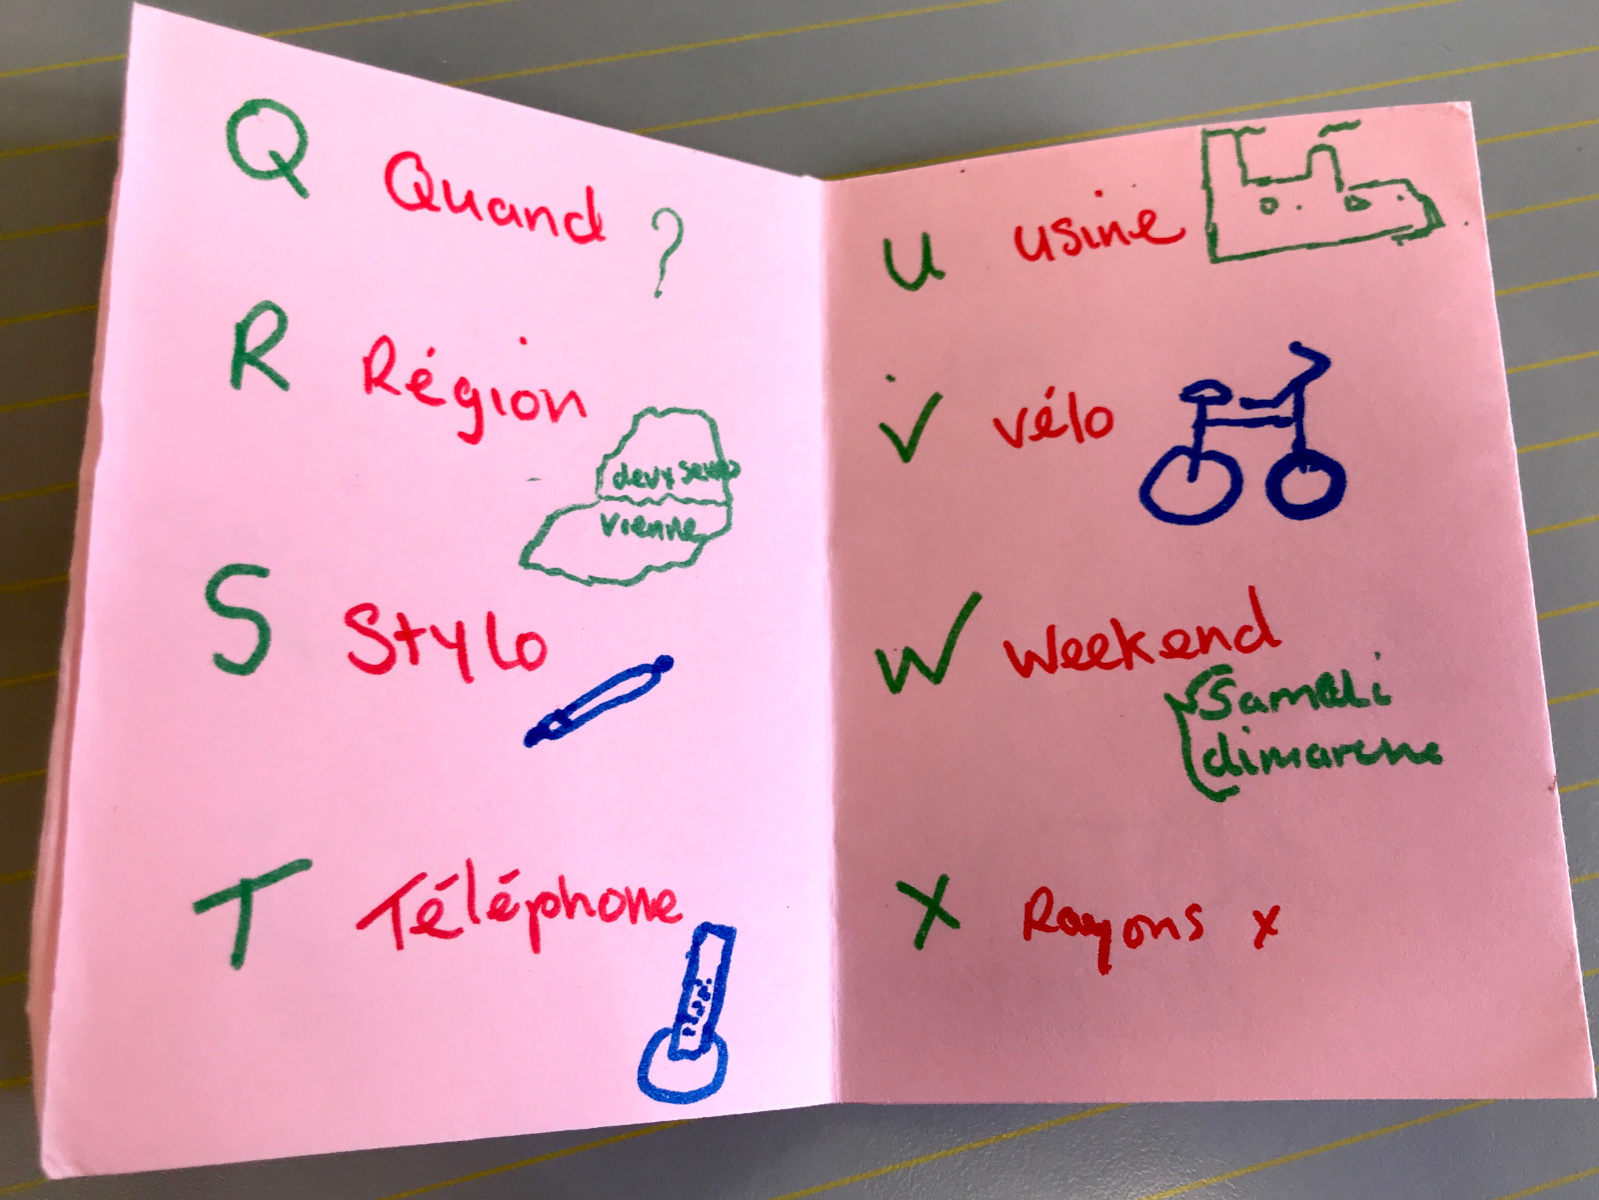 Q Quand ?
R Région
deux sevres
vienne
S Stylo
T Téléphone
U usine
V vélo
W Weekend
Samedi
dimanche
X Rayons x